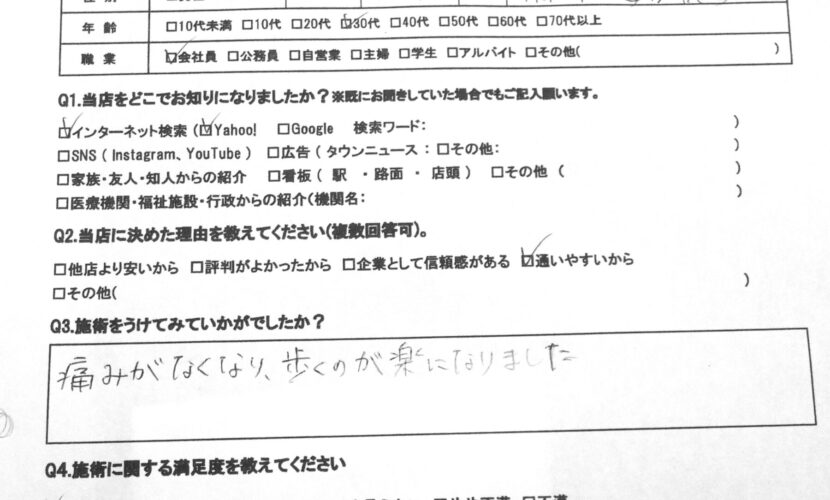 年 齢 □10代未満 □10代 □20代 ☑30代 □40代 □50代 □60代 □70代以上
職 業 ☑会社員 □公務員 □自営業 □主婦 □学生 □アルバイト □その他( )
Q1.当店をどこでお知りになりましたか?※既にお聞きしていた場合でもご記入願います。
☑インターネット検索 (☑Yahoo! □Google 検索ワード: )
□SNS ( Instagram、YouTube ) □広告 ( タウンニュース : □その他: )
□家族・友人・知人からの紹介 □看板 ( 駅 ・路面 ・ 店頭 ) □その他 ( )
□医療機関・福祉施設・行政からの紹介(機関名: )
Q2.当店に決めた理由を教えてください(複数回答可)。
□他店より安いから □評判がよかったから □企業として信頼感がある ☑通いやすいから
□その他( )
Q3.施術をうけてみていかがでしたか?
痛みがなくなり、歩くのが楽になりました
Q4.施術に関する満足度を教えてください